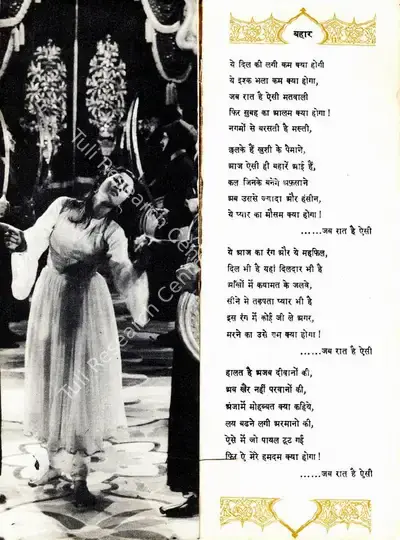 बहार
ये दिल की लगी कम क्या होगी
ये इश्क भला कम क्या होगा,
जब रात है ऐसी मतवाली
फिर सुबह का आलम क्या होगा!
नगमों से बरसती है मस्ती,
छलके हैं खुशी के पैमाने,
आज ऐसी ही बहारें आई हैं,
कल जिनके बनेंगे अफ़साने
अब उससे ज्यादा और हंसीन,
ये प्यार का मौसम क्या होगा!
......जब रात है ऐसी
ये आज का रंग और ये महफ़िल,
दिल भी है यहां दिलदार भी है
आँखों में कयामत के जलवे,
सीने मे तड़पता प्यार भी है
इस रंग में कोई जी ले अगर,
मरने का उसे गम क्या होगा!
......जब रात है ऐसी
हालत है अजब दीवानों की,
अब खैर नहीं परवानों की,
अंजामे मोहब्बत क्या कहिये,
लय बढने लगी अरमानो की,
ऐसे में जो पायल टूट गई
फिर ऐ मेरे हमदम क्या होगा!
......जब रात है ऐसी
Tuli Research Centre
Tuli Research Centre
Tuli Research Centre